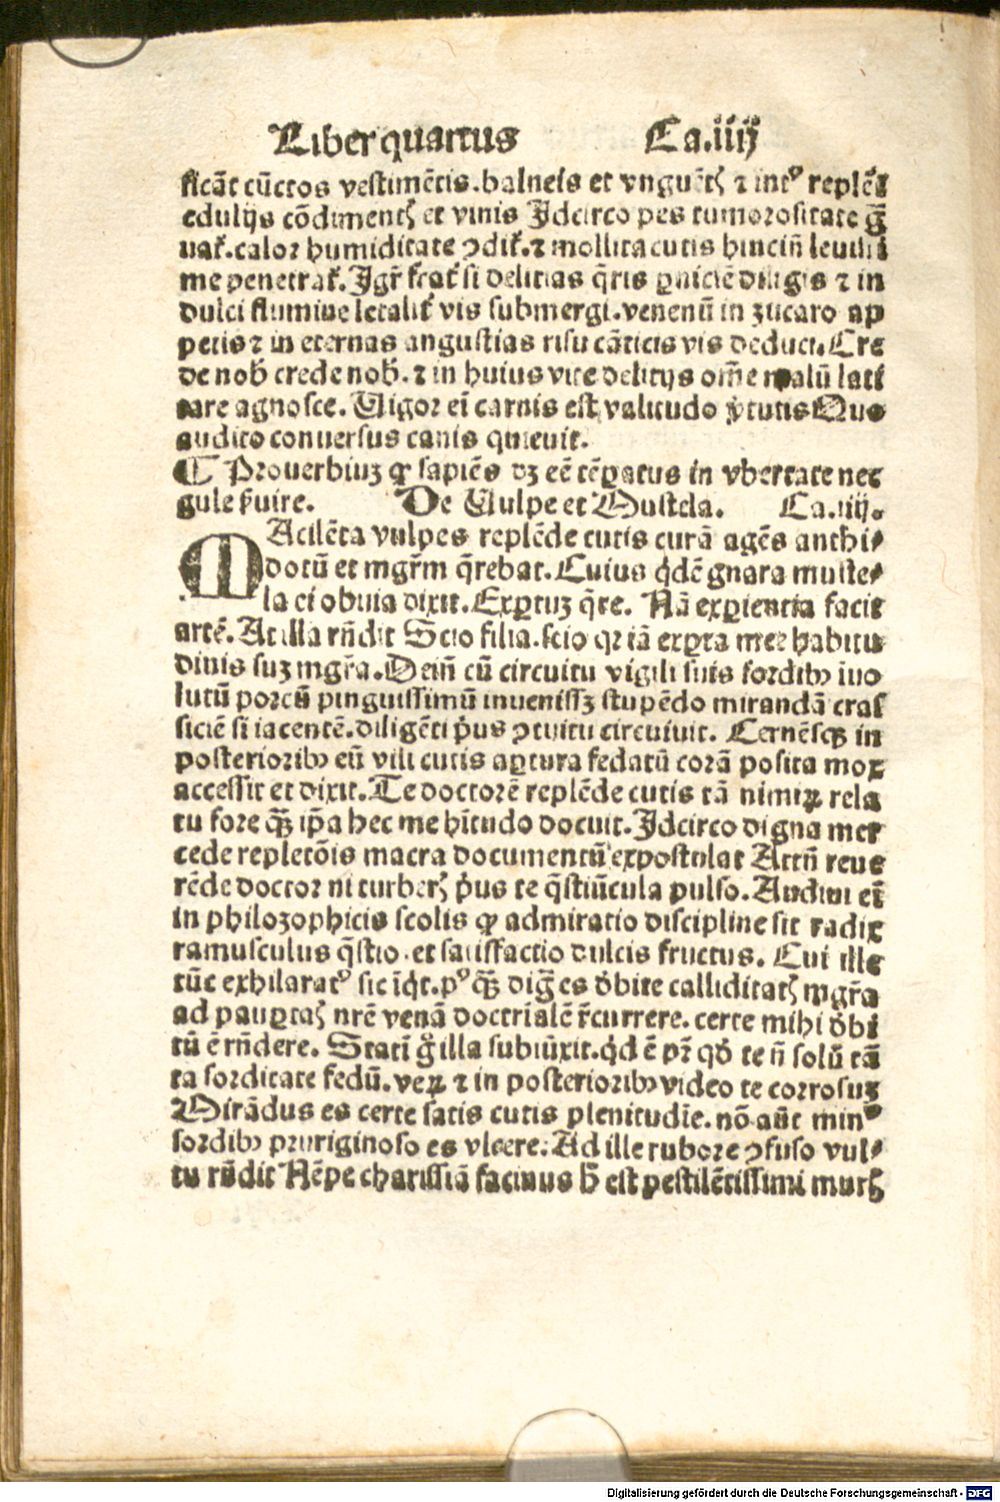 Liber quartus Ca.iiij
ficãt cũctos vestimẽtis.balneis et vnguẽtꝭ ⁊ intꝰ replẽt
edulijs cõdimentꝭ et vinis Jdcirco pes tumorositate g̃
uat᷑.calor humiditate ↄdit᷑.⁊ mollita cutis hincin̄ leuissi
me penetrat᷑. Jgr̄ frat᷑ si delitias q̄ris ꝑniciẽ diligis ⁊ in
dulci flumine letalit᷑ vis submergi.venenũ in zucaro ap
petis ⁊ in eternas angustias risu cãticis vis deduci.Cre
de nob̄ crede nob̄.⁊ in huius vite delitijs om̄e malũ lati
tare agnosce. Uigor ei carnis est valitudo v̓tutis Quo
audito conuersus canis quieuit.
¶ Prouerbiuꝫ ꝙ sapiẽs dꝫ eẽ tẽꝑatus in vbertate nec
gule ẜuire. De Uulpe et Mustela. Ca.iiij.
MAcilẽta vulpes replẽde cutis curã agẽs anthi⸗
dotũ et mgr̄m q̄rebat.Cuius q̓dẽ gnara muste⸗
la ei obuia dixit.Exꝑtuꝫ q̄re. Nã exꝑientia facit
artẽ.At illa rñdit Scio filia.scio qꝛ iã exꝑta mee habitu
dinis suꝫ mgr̄a.Dein̄ cũ circuitu vigili suis sordibꝰ inuo
lutũ porcũ pinguissimũ inuenissꝫ stupẽdo mirandã cras
siciẽ si iacentẽ.diligẽti p̓us ↄtuitu circuiuit. Cernẽsqꝫ in
posterioribꝰ eũ vili cutis aꝑtura fedatũ corã posita mox
accessit et dixit.Te doctorẽ replẽde cutis tã nimiꝝ rela
tu fore qꝫ̄ ip̃a hec me hĩtudo docuit.Jdcirco digna mer
cede repletõis macra documentũ expostulat Attñ reue
rẽde doctor ni turberꝭ p̓us te q̄stiũcula pulso.Audiui eĩ
in philozophicis scolis ꝙ admiratio discipline sit radix
ramusculus q̄stio.et satisfactio dulcis fructus. Cui ille
tũc exhilaratꝰ sic ĩq̓t.pꝰ qꝫ̄ dig̃ es d̓bite calliditatꝭ mgr̄a
ad pauꝑtaꝭ nr̄ẽ venã doctrialẽ r̄currere.certe mihi d̓bi
tũ ẽ rñdere. Statĩ g̓ illa subiũxit.q̓d ẽ pr̄ qd̓ te ñ solũ tã
ta sorditate fedũ.veꝝ ⁊ in posterioribꝰ video te corrosuꝫ
Mirãdus es certe satis cutis plenitudĩe.nõ aũt minꝰ
sordibꝰ pruriginoso es vlcere.Ad ille rubore ↄfuso vul⸗
tu rñdit Nẽpe charissiã facinus h̄ est pestilẽtissimi murꝭ